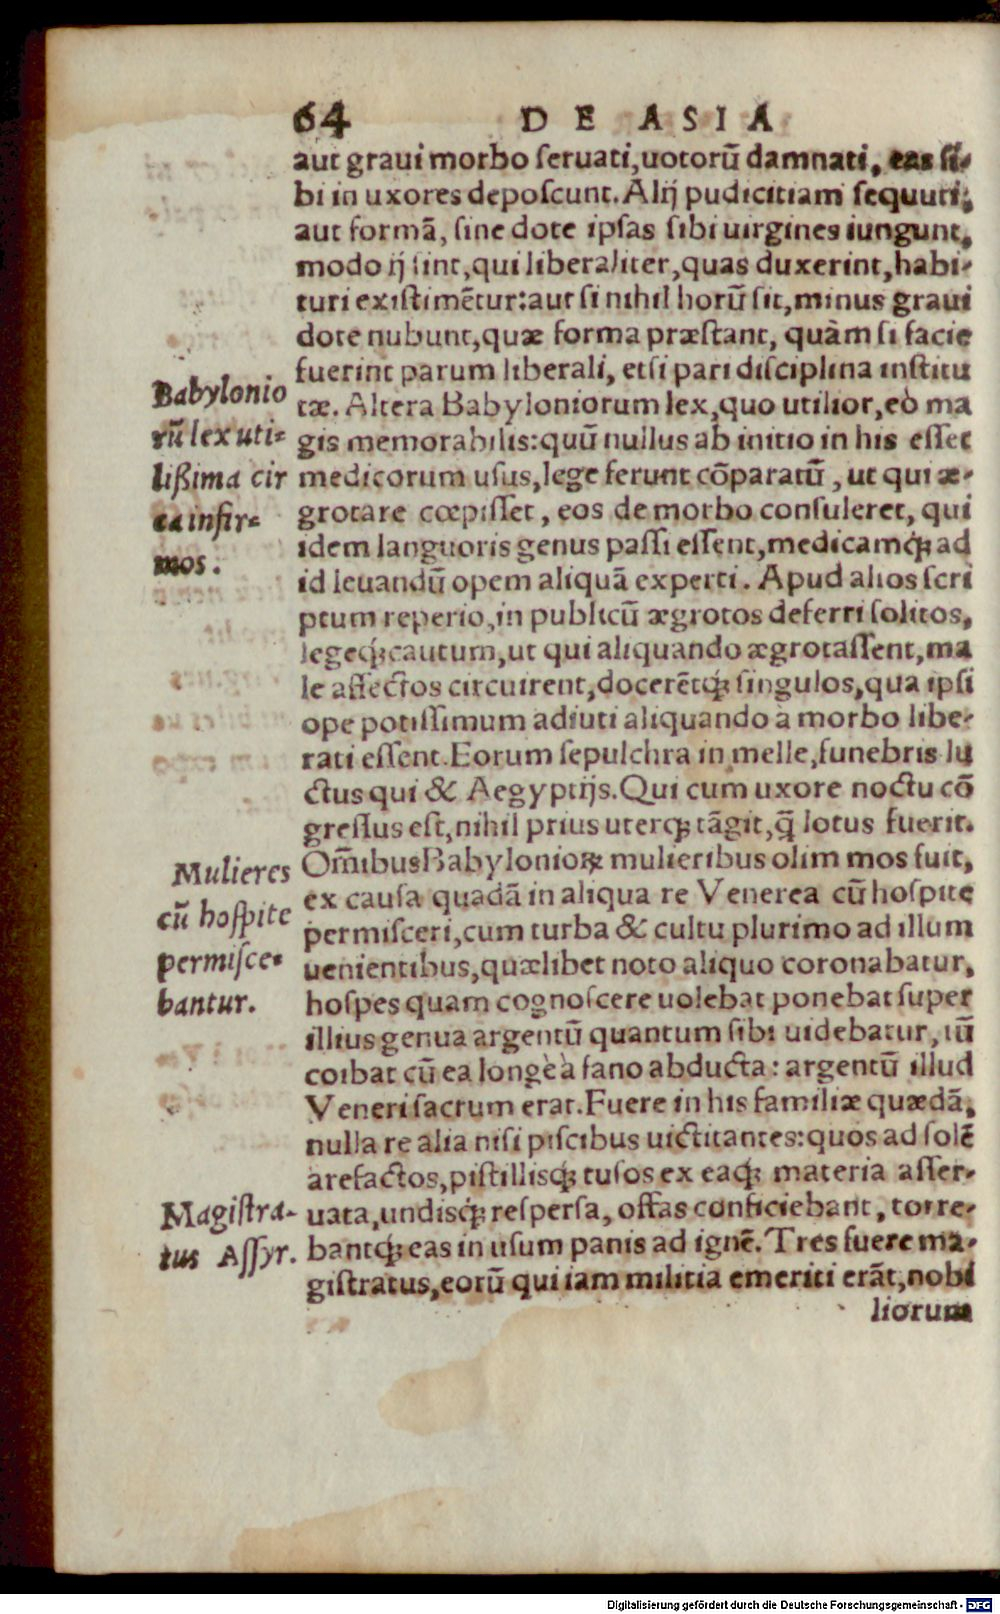 64 DE ASIA
aut graui morbo seruati, uotorũ damnati, eas si-
bi in uxores deposcunt. Alij pudicitiam sequuti,
aut formã, sine dote ipsas sibi uirgines iungunt,
modo ij sint, qui liberaliter, quas duxerint, habi-
turi existimẽtur: aut si nihil horũ sit, minus graui
dote nubunt, quæ forma præstant, quàm si facie
fuerint parum liberali, etsi pari disciplina institu
tæ. Altera Babyloniorum lex, quo utilior, eò ma
gis memorabilis: quũ nullus ab initio in his esset
medicorum usus, lege ferunt cõparatũ, ut qui æ-
grotare cœpisset, eos de morbo consuleret, qui
idem languoris genus passi essent, medicamq́; ad
id leuandũ opem aliquã experti. Apud alios scri
ptum reperio, in publicũ ægrotos deferri solitos,
legeq́; cautum, ut qui aliquando ægrotassent, ma
le affectos circuirent, docerẽtq́; singulos, qua ipsi
ope potissimum adiuti aliquando à morbo libe-
rati essent. Eorum sepulchra in melle, funebris lu
ctus qui & Aegyptijs. Qui cum uxore noctu cõ
gressus est, nihil prius uterq; tãgit, q̃ lotus fuerit.
Om̃ibus Babylonioꝝ mulieribus olim mos fuit,
ex causa quadã in aliqua re Venerea cũ hospite
permisceri, cum turba & cultu plurimo ad illum
uenientibus, quælibet noto aliquo coronabatur,
hospes quam cognoscere uolebat ponebat super
illius genua argentũ quantum sibi uidebatur, tũ
coibat cũ ea longè à fano abducta: argentũ illud
Veneri sacrum erat. Fuere in his familiæ quædã,
nulla re alia nisi piscibus uictitantes: quos ad solẽ
arefactos, pistillisq́; tusos ex eaq́; materia asser-
uata, undisq́; respersa, offas conficiebant, torre-
bantq́; eas in usum panis ad ignẽ. Tres fuere ma-
gistratus, eorũ qui iam militia emeriti erãt, nobi
liorum
Babylonio
rũ lex uti-
lißima cir
ca infir-
mos.
Mulieres
cũ hospite
permisce-
bantur.
Magistra-
tus Assyr.
Digitalisierung gefördert durch die Deutsche Forschungsgemeinschaft - DFG